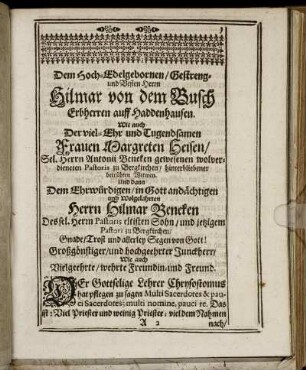 Dem Hoch-Edelgebornen/ Gestreng-
und Vesten Herrn
Hilmar von dem Busch
Erbherren auff Haddenhausen.
Wie auch
Der viel-Ehr und Tugendsamen
Frauen Margreten Heisen/
Sel. Herrn Antonii Bencken gewesenen wolver-
dieneten Pastoris zu Bergkirchen/ hinterbliebener
betrübten Witwen.
Und dann
Dem Ehrwürdigen/ in Gott andächtigen
und Wolgelahrten
Herrn Hilmar Bencken
Des sel. Herrn Pastoris eltisten Sohn/ und jetzigem
Pastori zu Bergkirchen/
Gnade/ Trost und allerley Segen von Gott!
Großgünstiger/ und hochgeehrter Junckherr/
Wie auch
Vielgeehrte/ wehrte Freundin und Freund.
DEr Gottselige Lehrer Chrysostomus
hat pflegen zu sagen Multi Sacerdotes & pau-
ci Sacerdotes; multi nomine, pauci re. Das
ist: Viel Priester und weinig Priester: viel dem Nahmen
A 2 nach/